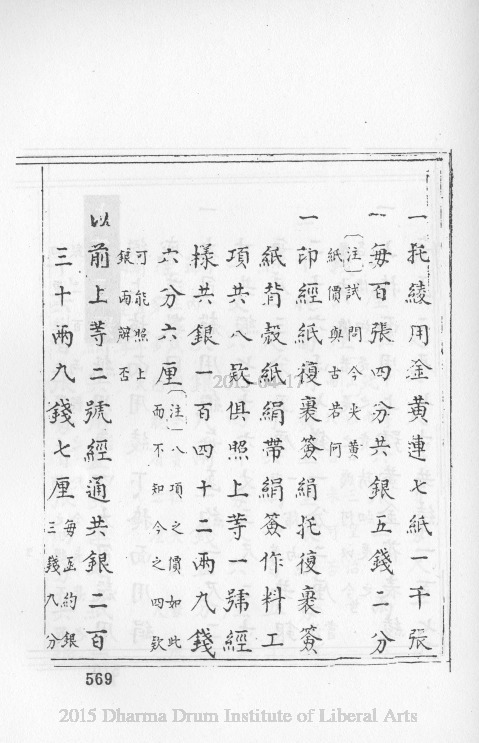 一托綾用金黄連七紙一千張
一每百張四分共銀五錢二分
〔注〕試問今夹黄
紙價與古若何
一印經紙復裹簽絹托復裹簽
紙背殼紙絹帶絹簽作料工
項共八欵俱照上等一號經
樣共銀一百四十二兩九錢
六分六厘〔注〕八項之價如此
而不知今之四欵
可能照上
銀兩辦否
以前上等二號經通共銀二百
三十兩九錢七厘每函約銀
三錢九分
569
2015-04-17
2015 Dharma Drum Institute of Liberal Arts